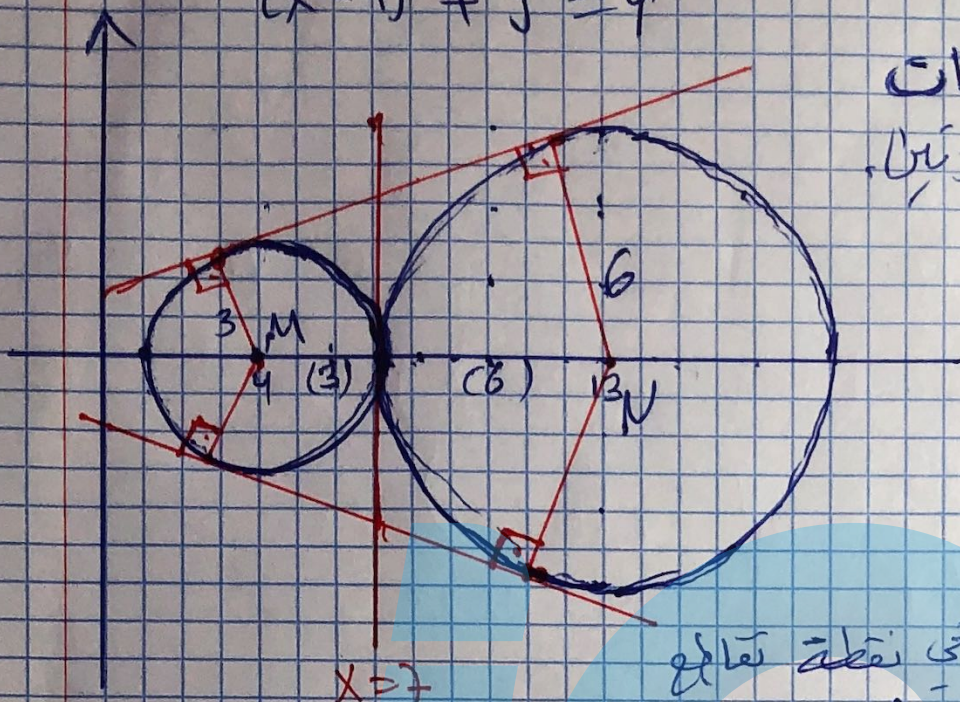 6
3
M
4
(3)
(6)
13
N
x=7
نقطة تقاطع